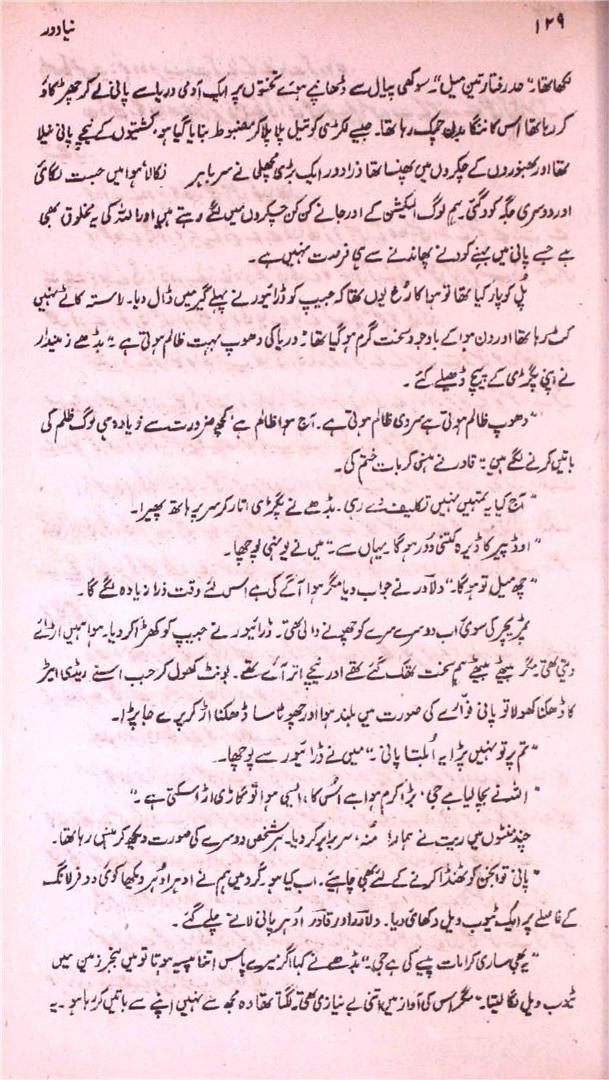 ۱۲۹
نیا دور
لکھا تھا۔ "حد رفتار تین میل"۔ سوکھی پیال سے ڈھانپے ہوئے تختوں پر ایک آدمی دریا سے پانی لے کر چھڑکاؤ
کر رہا تھا اس کا ننگا بدن چمک رہا تھا۔ جیسے لکڑی کو تیل پلا پلا کر مضبوط بنایا گیا ہو کشتیوں کے نیچے پانی نیلا
تھا اور بھنوروں کے چکروں میں پھنسا تھا ذرا دور ایک بڑی مچھلی نے سر باہر نکالا ہوا میں جست لگائی
اور دوسری جگہ کود گئی۔ ہم لوگ الیکشن کے اور جانے کن کن چکروں میں لگے رہتے ہیں اور اللہ کی یہ مخلوق بھی
ہے جسے پانی میں بہنے کودنے پھاندنے سے ہی فرصت نہیں ہے۔
پل کو پار کیا تھا تو ہوا کا رخ یوں تھا کہ جیپ کو ڈرائیور نے پہلے گیر میں ڈال دیا۔ راستہ کاٹے نہیں
کٹ رہا تھا اور دن ہوا کے باوجود سخت گرم ہو گیا تھا۔ "دریا کی دھوپ بہت ظالم ہوتی ہے" بڈھے زمیندار
نے اپنی پگڑی کے پیچ ڈھیلے کئے۔
"دھوپ ظالم ہوتی ہے سردی ظالم ہوتی ہے۔ آج ہوا ظالم ہے کچھ ضرورت سے زیادہ ہی لوگ ظلم کی
باتیں کرنے لگے ہیں" قادر نے ہنس کر بات ختم کی۔
"آج کیا یہ تمہیں نہیں تکلیف دے رہی۔ بڈھے نے پگڑی اتار کر سر پر ہاتھ پھیرا۔
"اوڈ پیر کا ڈیرہ کتنی دور ہو گا یہاں سے" میں نے یونہی پوچھا۔
"چھ میل تو ہو گا۔" دلاور نے جواب دیا مگر ہوا آگے کی ہے اس لئے وقت ذرا زیادہ لگے گا۔
ٹمپریچر کی سوئی اب دوسرے سرے کو چھونے والی تھی۔ ڈرائیور نے جیپ کو کھڑا کر دیا۔ ہوا ہمیں اڑائے
دیتی تھی مگر بیٹھے بیٹھے ہم سخت تھک گئے تھے اور نیچے اتر آئے تھے۔ بونٹ کھول کر جب اس نے ریڈی ایٹر
کا ڈھکنا کھولا تو پانی فوارے کی صورت میں بلند ہوا اور چھوٹا سا ڈھکنا اڑ کر پرے جا پڑا۔
"تم پر تو نہیں پڑا یہ ابلتا پانی۔" میں نے ڈرائیور سے پوچھا۔
"اللہ نے بچا لیا ہے جی، بڑا کرم ہوا ہے اس کا، ایسی ہوا تو گاڑی اڑا سکتی ہے۔"
چند منٹوں میں ریت نے ہمارا منہ، سر برابر کر دیا۔ ہر شخص دوسرے کی صورت دیکھ کر ہنس رہا تھا۔
"پانی تو انجن کو ٹھنڈا کرنے کے لئے بھی چاہیئے۔ اب کیا ہو۔ گرد میں ہم نے ادہر ادہر دیکھا کوئی دو فرلانگ
کے فاصلے پر ایک ٹیوب ویل دکھائی دیا۔ دلاور اور قادر ادہر پانی لانے چلے گئے۔
"یہ بھی ساری کرامات پیسے کی ہے جی۔" بڈھے نے کہا اگر میرے پاس اتنا پیسہ ہوتا تو میں بنجر زمین میں
ٹیوب ویل لگا لیتا۔" مگر اس کی آواز میں اتنی بے نیازی تھی۔ لگتا تھا وہ مجھ سے نہیں اپنے سے باتیں کر رہا ہو۔ یہ